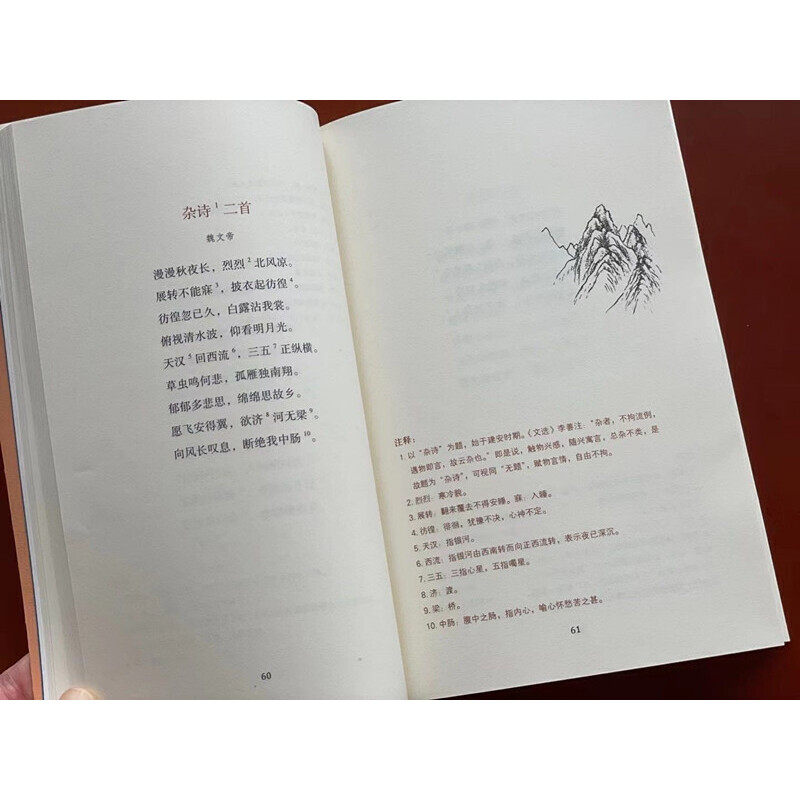 杂诗1二首
魏文帝
漫漫秋夜长，烈烈2北风凉。
展转不能寐3，披衣起彷徨4。
彷徨忽已久，白露沾我裳。
俯视清水波，仰看明月光。
天汉5回西流6，三五7正纵横。
草虫鸣何悲，孤雁独南翔。
郁郁多悲思，绵绵思故乡。
愿飞安得翼，欲济8河无梁9。
向风长叹息，断绝我中肠10。
60
注释：
1. 以“杂诗”为题，始于建安时期。《文选》李善注：“杂者，不拘流例，
遇物即言，故云杂也。”即是说，触物兴感，随兴寓言，总杂不类，是
故题为“杂诗”，可视同“无题”，赋物言情，自由不拘。
2. 烈烈：寒冷貌。
3. 展转：翻来覆去不得安睡。寐：入睡。
4. 彷徨：徘徊，犹豫不决，心神不定。
5. 天汉：指银河。
6. 西流：指银河由西南转而向正西流转，表示夜已深沉。
7. 三五：三指心星，五指噣星。
8. 济：渡。
9. 梁：桥。
10. 中肠：腹中之肠，指内心，喻心怀愁苦之甚。
61